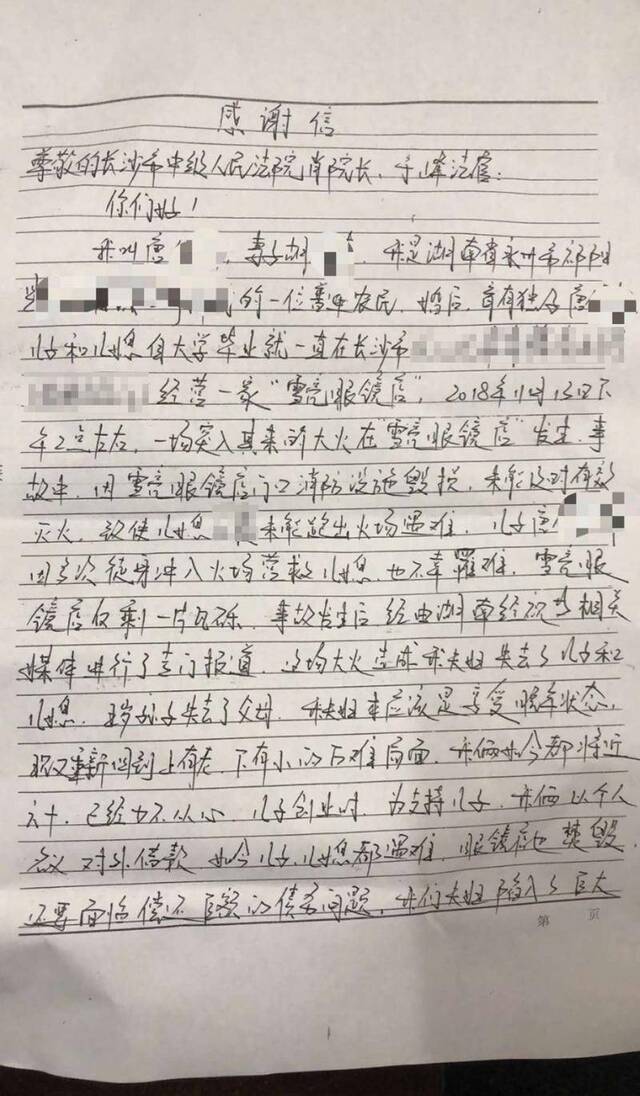 感谢信
尊敬的长沙市中级人民法院肖院长、于峰法官：
你们好！
我叫唐，妻子胡，我是湖南省永州市祁阳
的一位普通农民，婚后，育有独子唐
儿子和儿媳自大学毕业就一直在长沙市
经营一家“雪亮眼镜店”，2018年11月13日下
午2点左右，一场突入其来的大火在“雪亮眼镜店”发生，事
故中，因雪亮眼镜店门口消防设施毁损，未能及时有效
灭火，致使儿媳未能跑出火场遇难，儿子唐
因多次徒身冲入火场营救儿媳也不幸罹难，雪亮眼
镜店仅剩一片瓦砾，事故发生后经由湖南经视与相关
媒体进行了专门报道，这场大火造成我夫妇失去了儿子和
儿媳，孙子失去了父母，我夫妇本应该是享受晚年状态，
现又重新回到上有老，下有小的万难局面，我俩如今都将近
六十，已经力不从心，儿子创业时，为支持儿子，我俩以个人
名义对外借款，如今儿子儿媳都遇难，眼镜店也焚毁，
还要面临偿还巨额的债务问题，我们夫妇陷入了巨大
第 页